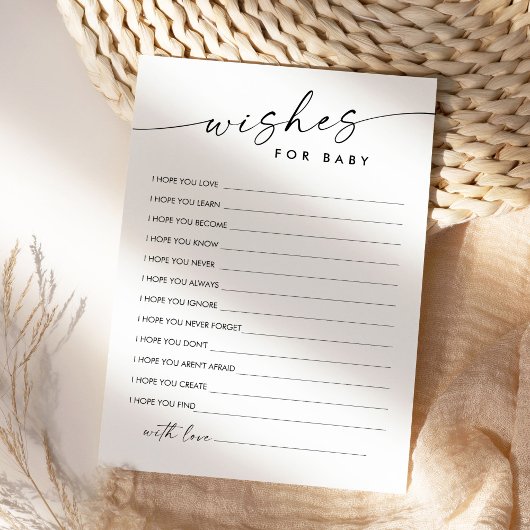 wishes
FOR BABY
I HOPE YOU LOVE
I HOPE YOU LEARN
I HOPE YOU BECOME
I HOPE YOU KNOW
I HOPE YOU NEVER
I HOPE YOU ALWAYS
I HOPE YOU IGNORE
I HOPE YOU NEVER FORGET
I HOPE YOU DON'T
I HOPE YOU AREN'T AFRAID
I HOPE YOU CREATE
I HOPE YOU FIND
with love